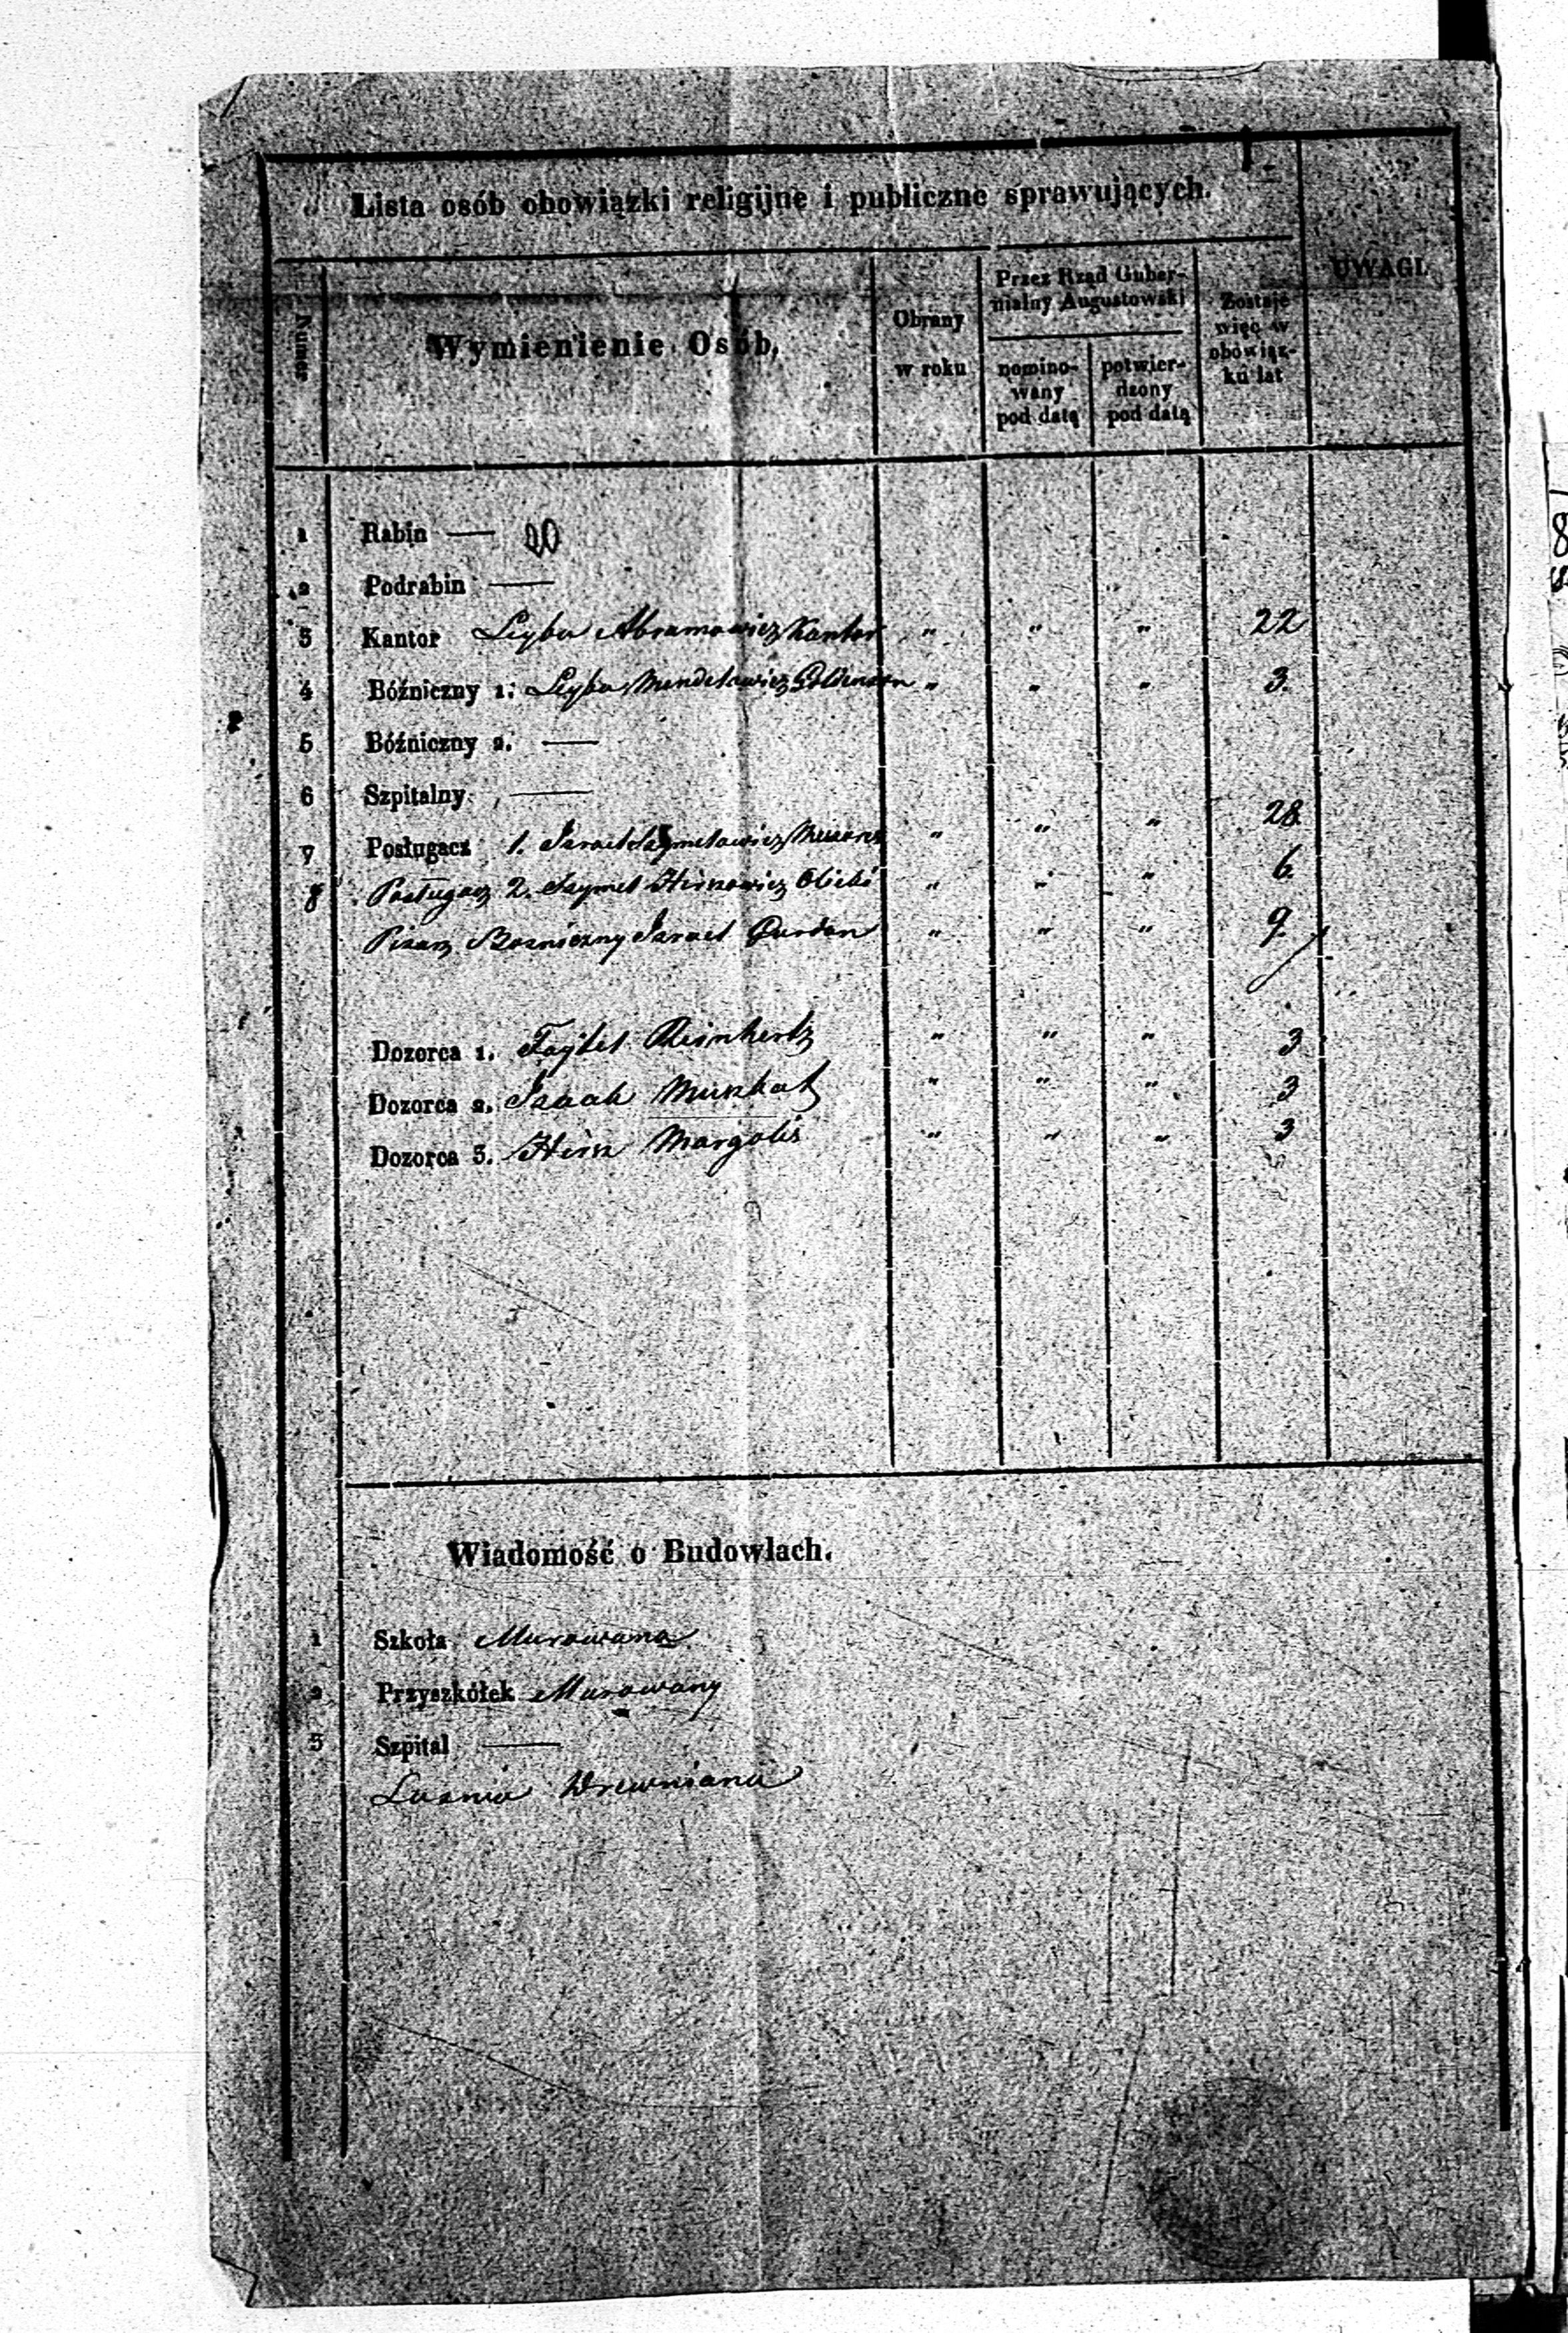 Lista osób obowiązki religijne i publiczne sprawujących.
UWAGI.
Numer
Wymienienie Osób,
Obrany w roku
Przez Rząd Guber-
nialny Augustowski
nomino-
wany
pod datą
potwier-
dzony
pod datą
Zostaje
więc w
obowiąz-
ku lat
1 Rabin —
2 Podrabin —
3 Kantor Leyba Abramowicz Kantor " " " 22
4 Bóźniczny 1. Leyba Mendelowicz " " " 3.
5 Bóźniczny 2. —
6 Szpitalny —
7 Posługacz 1. Israel " " " 28.
8 Posługacz 2. Szymel Hirszowicz " " " 6.
Pisarz Bozniczny Israel Gordon " " " 9.
Dozorca 1. Faytel " " " 3
Dozorca 2. Izaak " " " 3
Dozorca 3. Hirsz Margolis " " " 3
Wiadomość o Budowlach.
1 Szkoła Murowana
2 Przyszkółek Murowany
3 Szpital —
Łaznia Drewniana